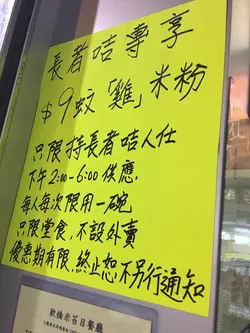 長者咭專享
$9蚊「雞」米粉
只限持長者咭人仕
下午2:00-6:00供應
每人每次限用一碗
只限堂食，不設外賣
優惠期有限，終止恕不另行通知
軟橋米苔目餐廳